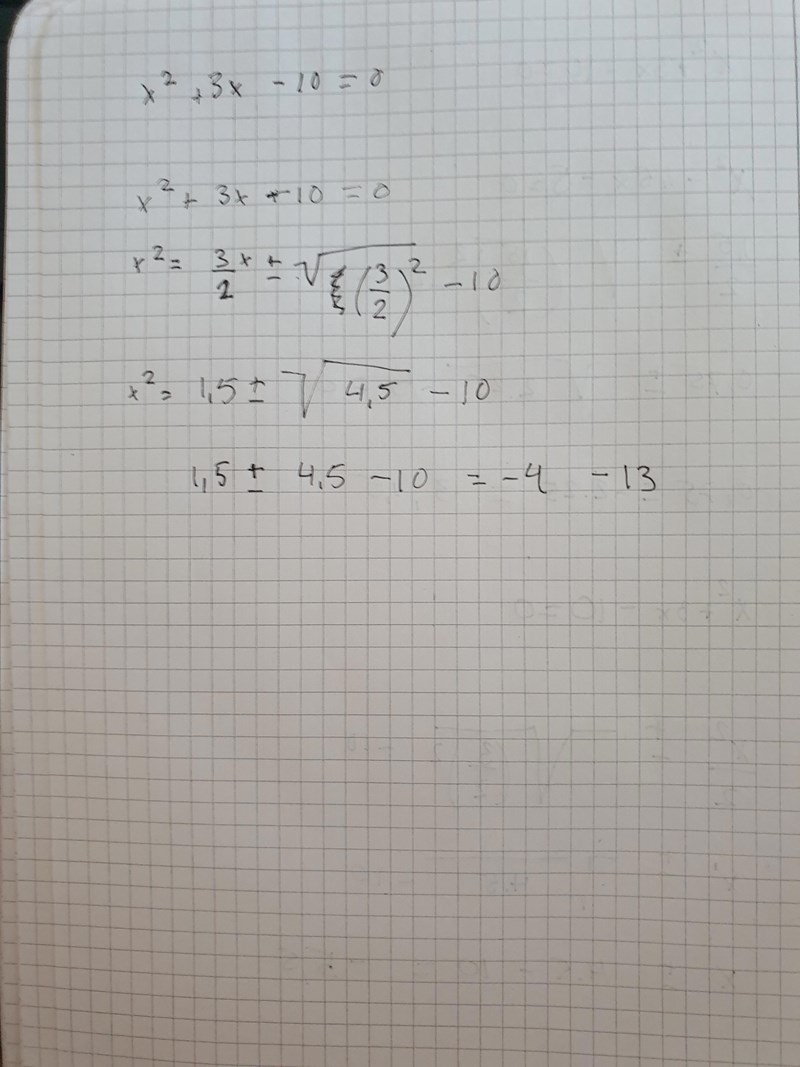 x² + 3x - 10 = 0
x² + 3x + 10 = 0
x² = 3x/2 ± √(3/2)² - 10
x² = 1,5 ± √4,5 - 10
1,5 ± 4,5 - 10 = -4 - 13